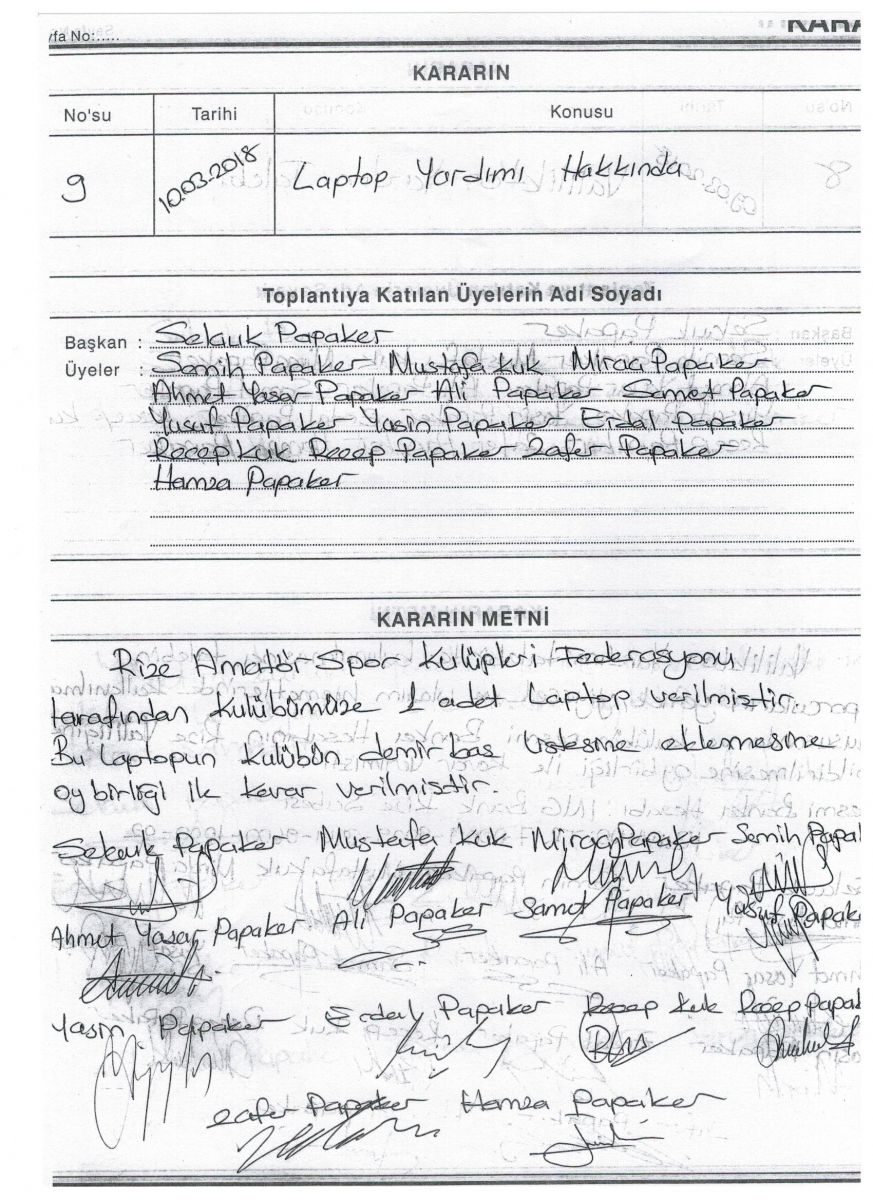 yfa No:.....
KARARIN
No'su Tarihi Konusu
9 10.03.2018 Laptop Yardımı Hakkında
Toplantıya Katılan Üyelerin Adı Soyadı
Başkan : Selçuk Papaker
Üyeler : Semih Papaker Mustafa Kuk Miraç Papaker
Ahmet Yaşar Papaker Ali Papaker Samet Papaker
Yusuf Papaker Yasin Papaker Erdal Papaker
Recep Kuk Recep Papaker Zafer Papaker
Hamza Papaker
KARARIN METNİ
Rize Amatör Spor Kulüpleri Federasyonu
tarafından kulübümüze 1 adet Laptop verilmiştir.
Bu Laptopun kulübün demirbaş listesine eklenmesine
oybirliği ile karar verilmiştir.
Selçuk Papaker Mustafa Kuk Miraç Papaker Semih Papak
Ahmet Yaşar Papaker Ali Papaker Samet Papaker Yusuf Papake
Yasin Papaker Erdal Papaker Recep Kuk Recep Papak
Zafer Papaker Hamza Papaker